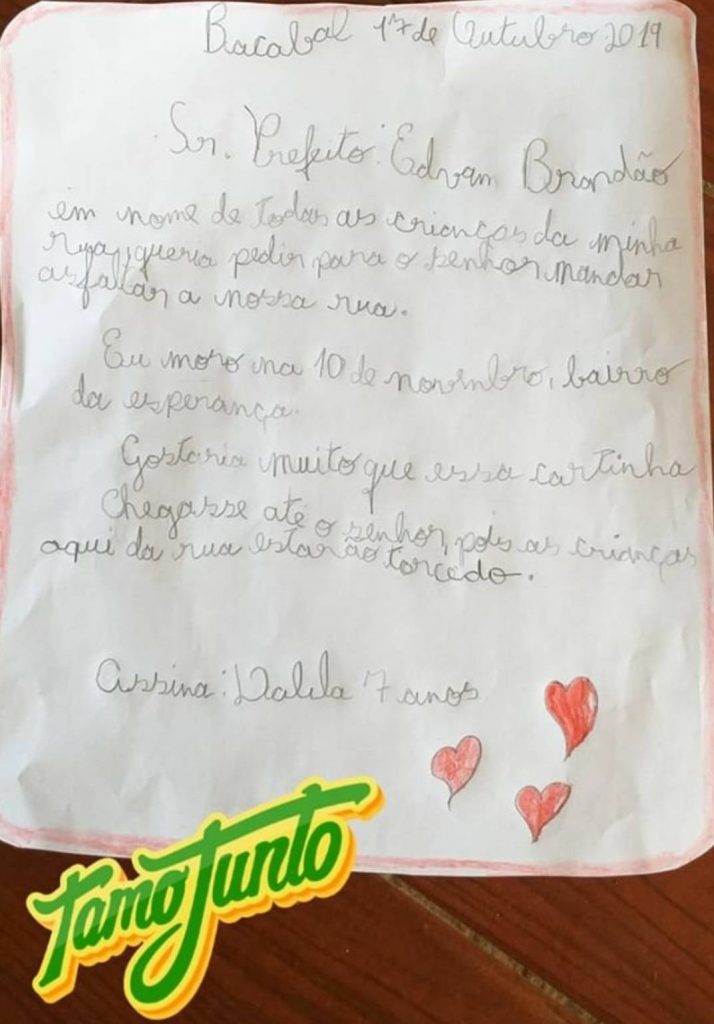 Bacabal 17 de Outubro 2019
Sr. Prefeito: Edvam Brandão
em nome de todas as crianças da minha
rua, queria pedir para o senhor mandar
asfaltar a nossa rua.
Eu moro na 10 de novembro, bairro
da esperança.
Gostaria muito que essa cartinha
Chegasse até o senhor, pois as crianças
aqui da rua estarão torcedo.
Assina: Dalila 7 anos
Tamo Junto